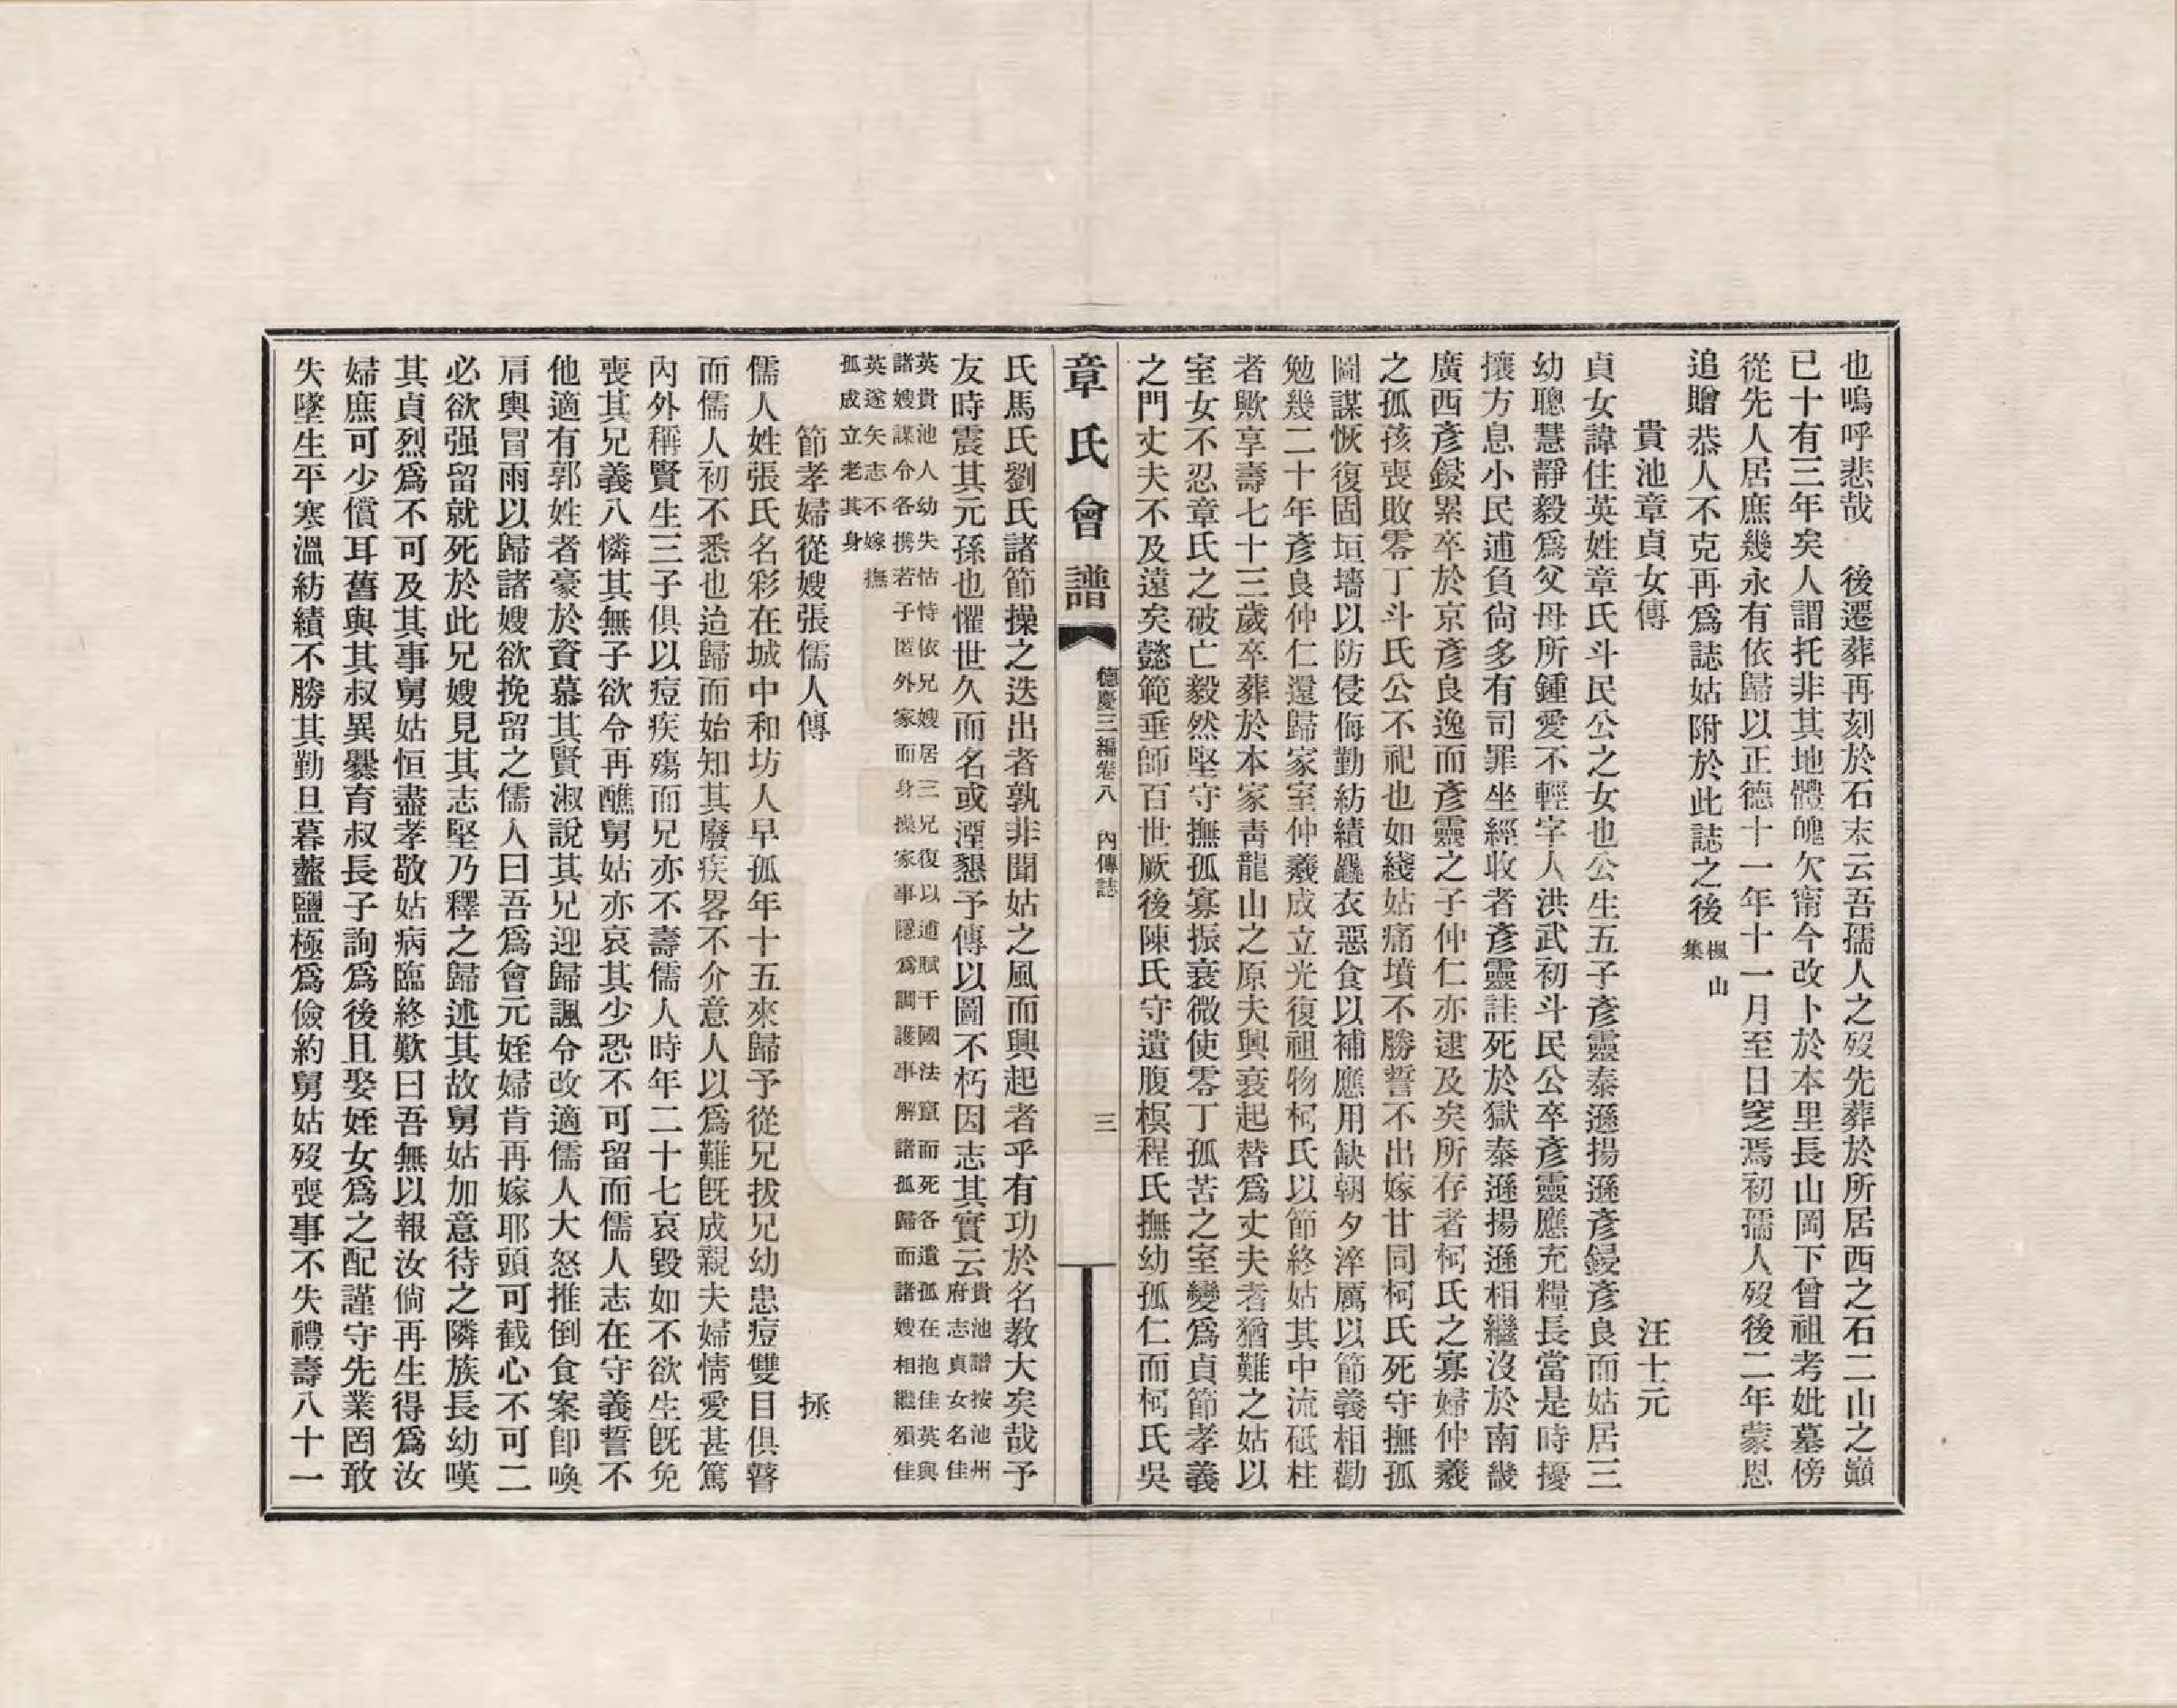 也嗚呼悲哉　後遷葬再刻於石末云吾孺人之歿先葬於所居西之石二山之巓
已十有三年矣人謂托非其地體魄欠甯今改卜於本里長山岡下曾祖考妣墓傍
從先人居庶幾永有依歸以正德十一年十一月至日窆焉初孺人歿後二年蒙恩
追贈恭人不克再爲誌姑附於此誌之後楓山集
貴池章貞女傳　汪士元
貞女諱住英姓章氏斗民公之女也公生五子彥靈泰遜揚遜彥鋟彥良而姑居三
幼聰慧靜毅爲父母所鍾愛不輕字人洪武初斗民公卒彥靈應充糧長當是時擾
攘方息小民逋負尙多有司罪坐經收者彥靈註死於獄泰遜揚遜相繼沒於南畿
廣西彥鋟累卒於京彥良逸而彥靈之子仲仁亦逮及矣所存者柯氏之寡婦仲羲
之孤孩喪敗零丁斗氏公不祀也如綫姑痛墳不勝誓不出嫁甘同柯氏死守撫孤
圖謀恢復固垣墻以防侵侮勤紡績麤衣惡食以補應用缺朝夕淬厲以節義相勸
勉幾二十年彥良仲仁還歸家室仲羲成立光復祖物柯氏以節終姑其中流砥柱
者歟享壽七十三歲卒葬於本家靑龍山之原夫興衰起替爲丈夫者猶難之姑以
室女不忍章氏之破亡毅然堅守撫孤寡振衰微使零丁孤苦之室變爲貞節孝義
之門丈夫不及遠矣懿範垂師百世厥後陳氏守遺腹棋程氏撫幼孤仁而柯氏吳
章氏會譜　德慶三編卷八　內傳誌　三
氏馬氏劉氏諸節操之迭出者孰非聞姑之風而興起者乎有功於名教大矣哉予
友時震其元孫也懼世久而名或湮懇予傳以圖不朽因志其實云貴池譜按池州府志貞女名佳
英貴池人幼失怙恃依兄嫂居三兄復以逋賦干國法竄而死各遺孤在抱佳英與
諸嫂謀令各携若子匿外家而身操家事隱爲調護事解諸孤歸而諸嫂相繼殞佳
英遂矢志不嫁撫
孤成立老其身
節孝婦從嫂張儒人傳　拯
儒人姓張氏名彩在城中和坊人早孤年十五來歸予從兄拔兄幼患痘雙目俱瞽
而儒人初不悉也迨歸而始知其廢疾畧不介意人以爲難旣成親夫婦情愛甚篤
內外稱賢生三子俱以痘疾殤而兄亦不壽儒人時年二十七哀毀如不欲生旣免
喪其兄義八憐其無子欲令再醮舅姑亦哀其少恐不可留而儒人志在守義誓不
他適有郭姓者豪於資慕其賢淑說其兄迎歸諷令改適儒人大怒推倒食案卽喚
肩輿冒雨以歸諸嫂欲挽留之儒人曰吾爲會元姪婦肯再嫁耶頭可截心不可二
必欲强留就死於此兄嫂見其志堅乃釋之歸述其故舅姑加意待之隣族長幼嘆
其貞烈爲不可及其事舅姑恒盡孝敬姑病臨終歎曰吾無以報汝倘再生得爲汝
婦庶可少償耳舊與其叔異爨育叔長子詢爲後且娶姪女爲之配謹守先業罔敢
失墜生平寒溫紡績不勝其勤旦暮虀鹽極爲儉約舅姑歿喪事不失禮壽八十一